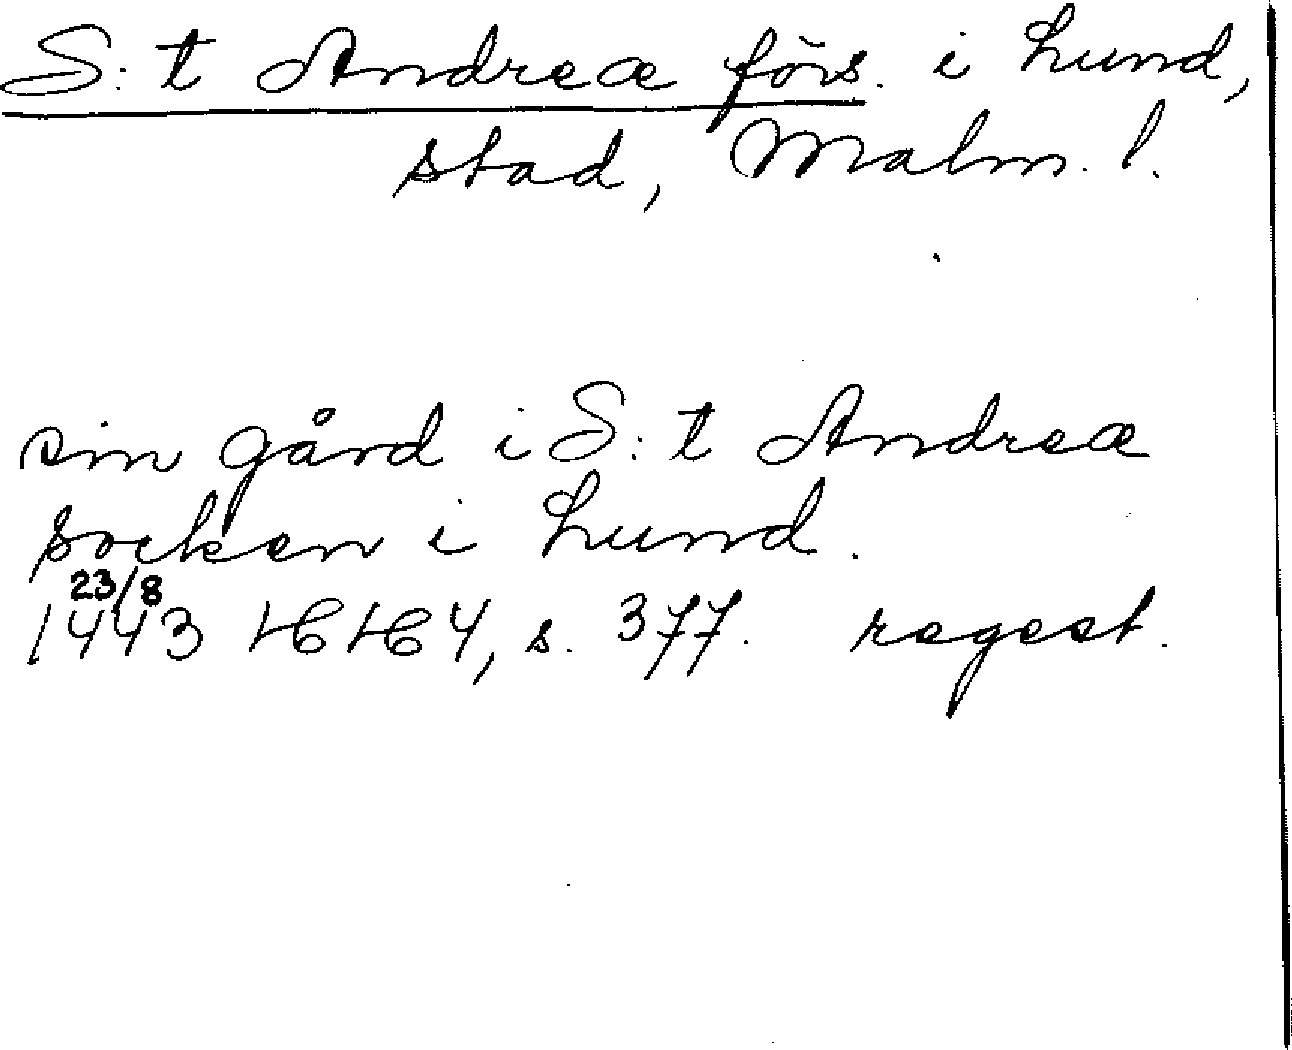 S:t Andreæ förs. i Lund,
stad, Malm. l.
sin gård i S:t Andreæ
socken i Lund.
23/8
1443 HH 4, s. 377. regest.